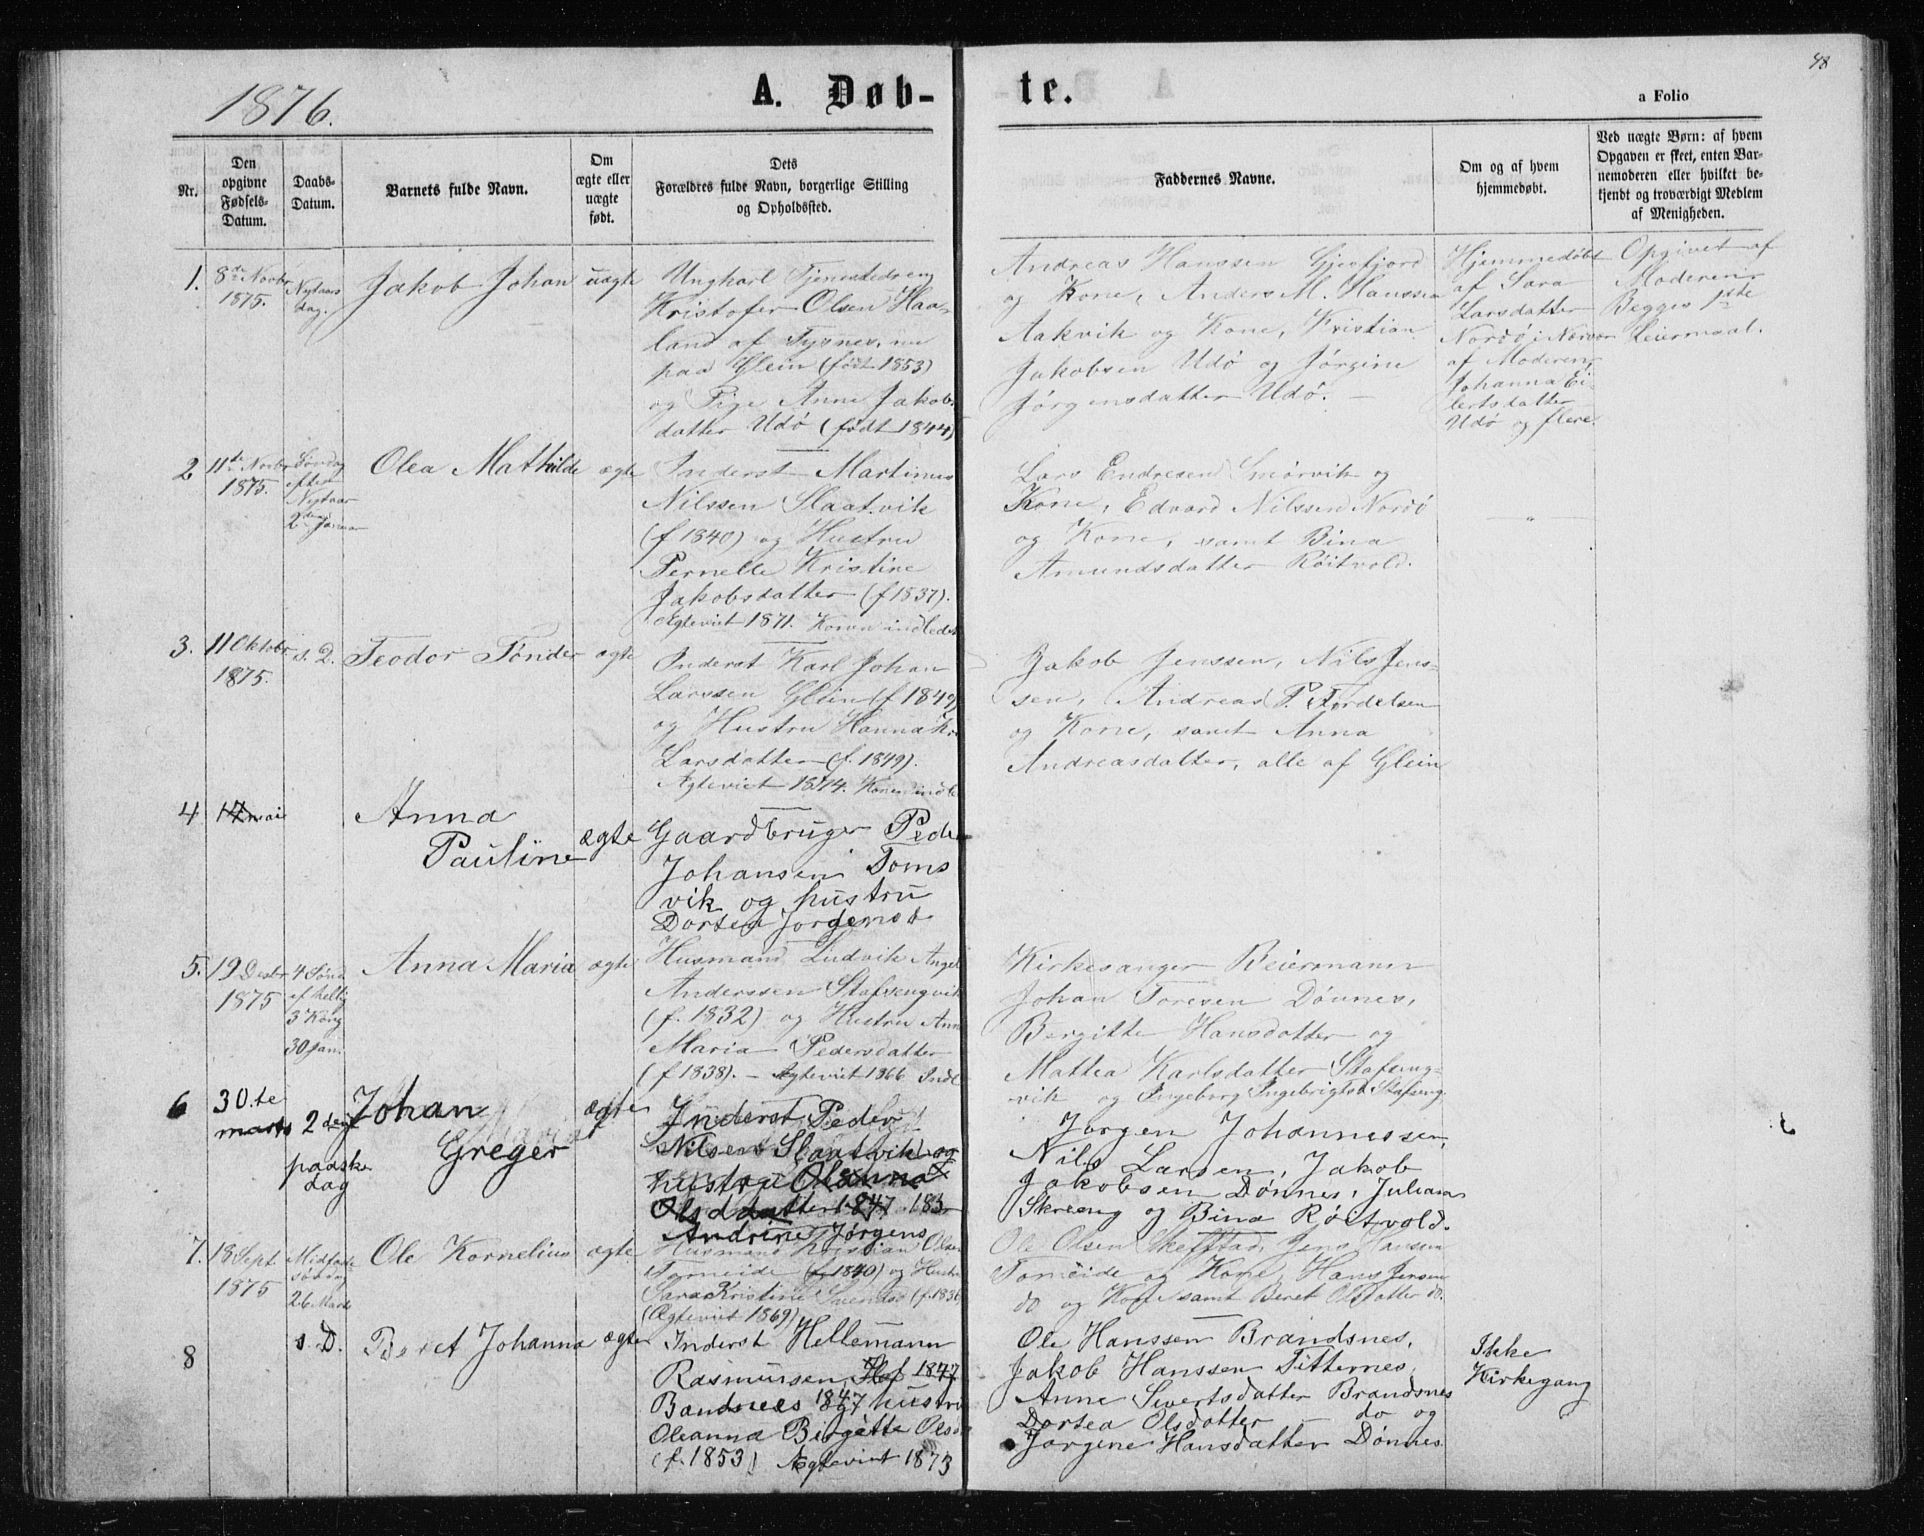 1876.
A. Døb-
te.
48
a Folio
Nr.
Den
opgivne
Fødsels-
Datum.
Daabs-
Datum.
Barnets fulde Navn.
Om
ægte eller
uægte
født.
Dets
Forældres fulde Navn, borgerlige Stilling
og Opholdssted.
Faddernes Navne.
Om og af hvem
hjemmedøbt.
Ved uægte Børn: af hvem
Opgaven er skeet, enten Bar-
nemoderen eller hvilket be-
kjendt og troværdigt Medlem
af Menigheden.
1.
8de Novbr
1875.
Nytaars
dag.
Jakob Johan
uægte
Ungkarl Tjenestedreng
Kristofer Olsen Haa-
land af Tysnes, nu
paa Glein (født 1853)
og Pige Anne Jakobs
datter Udø (født 1844)
Andreas Hanssen Gjesfjord
og Kone, Anders M. Hanssen
Aakvik og Kone, Kristian
Jakobsen Udø og Jørgine
Jørgensdatter Udø.
Hjemmedøbt
af Sara
Larsdatter
Nordø i Nærvær
af Moderen,
Johanna Ei-
lertsdatter
Udø og flere.
Opgivet af
Moderen
Begges 1ste
Leiermaal.
2
11te Novbr
1875.
Søndag
efter
Nytaar
2den Januar
Olea Mathilde
ægte
Inderst Martinus
Nilssen Slaatvik
(f 1840) og Hustru
Pernelle Kristine
Jakobsdatter (f 1837).
Ægteviet 1871. Konen indledet
Lars Endresen Smørvik og
Kone, Edvard Nilssen Nordø
og Kone, samt Bina
Amundsdatter Røitvold.
3.
11 Oktobr
1875.
s. D.
Teodor Tønder
ægte
Inderst Karl Johan
Larssen Glein (f 1849)
og Hustru Hanna K.
Larsdatter (f. 1849).
Ægteviet 1874. Konen indle
Jakob Jenssen, Nils Jens-
sen, Andreas P. Fordelsen
og Kone, samt Anna
Andreasdatter, alle af Glein
4
17 mai
Anna
Pauline
ægte
Gaardbruger Pede
Johansen Toms
vik og hustru
Dortea Jorgensd
5.
19 Desbr
1875
4 Sønd.
ef hellig
3 Kong
30 Jan.
Anna Maria
ægte
Husmand Ludvik Angel
Anderssen Stafsengvik
(f. 1832) og Hustru Ann
Maria Pedersdatter
(f 1838). – Ægteviet 1866 Indl
Kirkesanger Beiermann
Johan Toresen Dønnes,
Bergitte Hansdatter og
Mattea Karlsdatter Stafseng-
vik og Ingeborg Ingebrigtsd Stafseng.
6
30.te
marts
2 den
paaske
dag
Johan
Greger
ægte
Inderst Peder
Nilsen Slaatvik og
hustru Oleanna
Olsdatter 1847 183
Andrine Jørgens
Jørgen Johannessen,
Nils Larsen, Jakob
Jakobsen Dønnes, Julian
Skreeng og Bina Røitvold.
7.
18 Sept
1875
Midfaste
søndag
26 Marts
Ole Kornelius
ægte
Husmand Kristian Olsen
Tomeide (f 1840) og Hustr
Sara Kristine Svendsd (f. 1836
(Ægteviet 1869)
Ole Olsen Skeffstad, Jens Hansen
Tomeide og Kone, Hans Jensen
do og Kone samt Beret Olsdatter do.
8
s. D.
Beret Johanna
ægte
Inderst Hellemann
Rasmussen Hof 1847
Bandnees 1847 hustru
Oleanna Birgitte Olsd
(f. 1853) Ægteviet 1873
Ole Hanssen Brandsnes,
Jakob Hanssen Titternes,
Anne Sivertsdatter Brandsnes
Dortea Olsdatter – do og
Jørgine Hansdatter Dønnes.
Ikke
Kirkegang